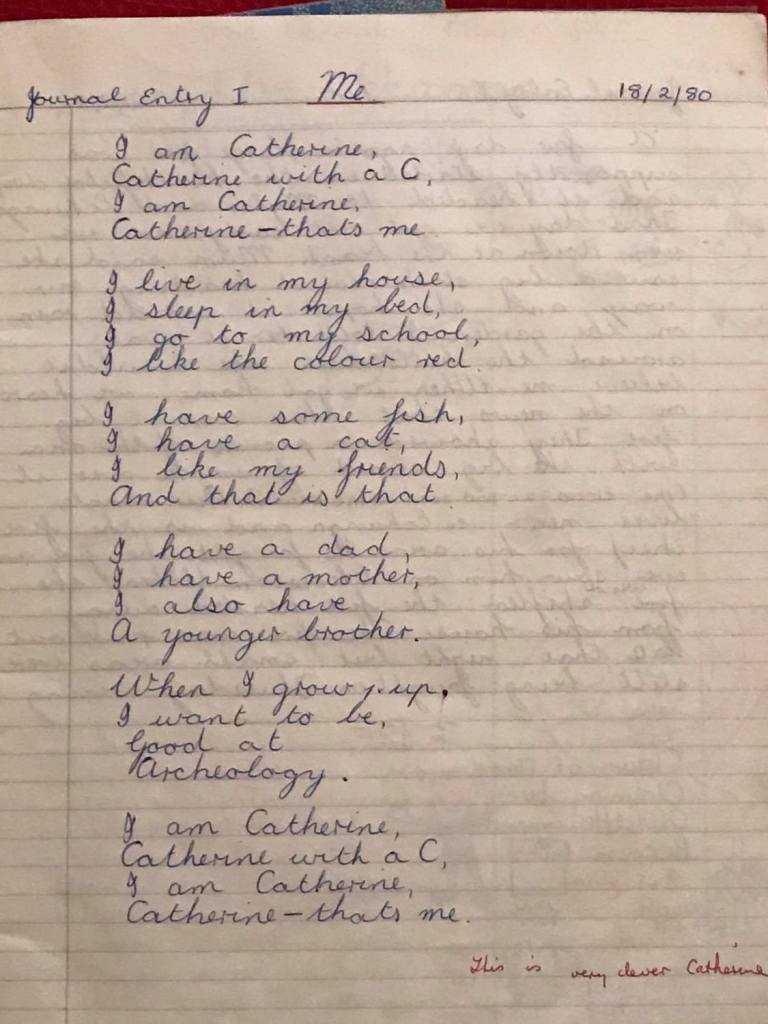 Journal Entry I Me 18/2/80
I am Catherine,
Catherine with a C,
I am Catherine,
Catherine-thats me
I live in my house,
I sleep in my bed,
I go to my school,
I like the colour red.
I have some fish,
I have a cat,
I like my friends,
And that is that
I have a dad,
I have a mother,
I also have,
A younger brother.
When I grow up,
I want to be,
Good at
Archeology.
I am Catherine,
Catherine with a C,
I am Catherine,
Catherine-thats me.
This is very clever Catherine